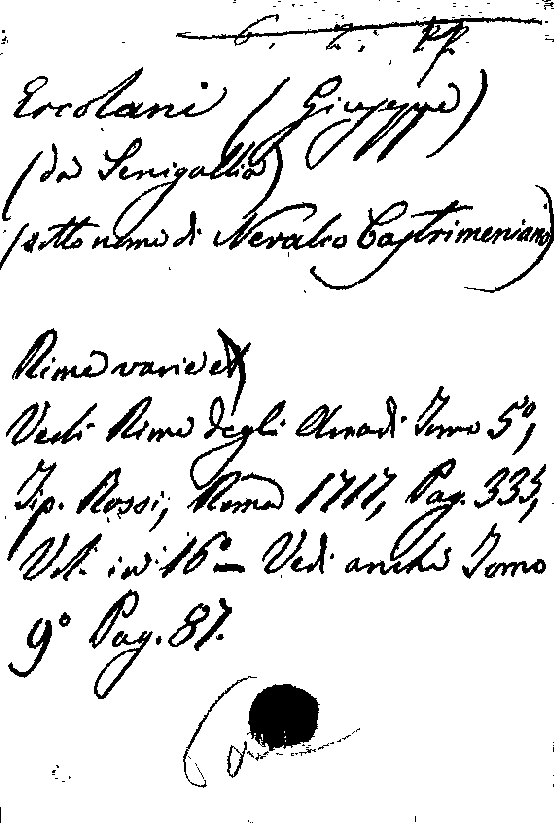 Ercolani (Giuseppe)
(da Senigallia)
(sotto nome di Neralco Castrimeniano)
Rime varie
Vedi Rime degli Arcadi Tomo 5º,
Tip. Rossi, Roma 1717, Pag. 335,
Vol. in 16º — Vedi anche Tomo
9º Pag. 87.